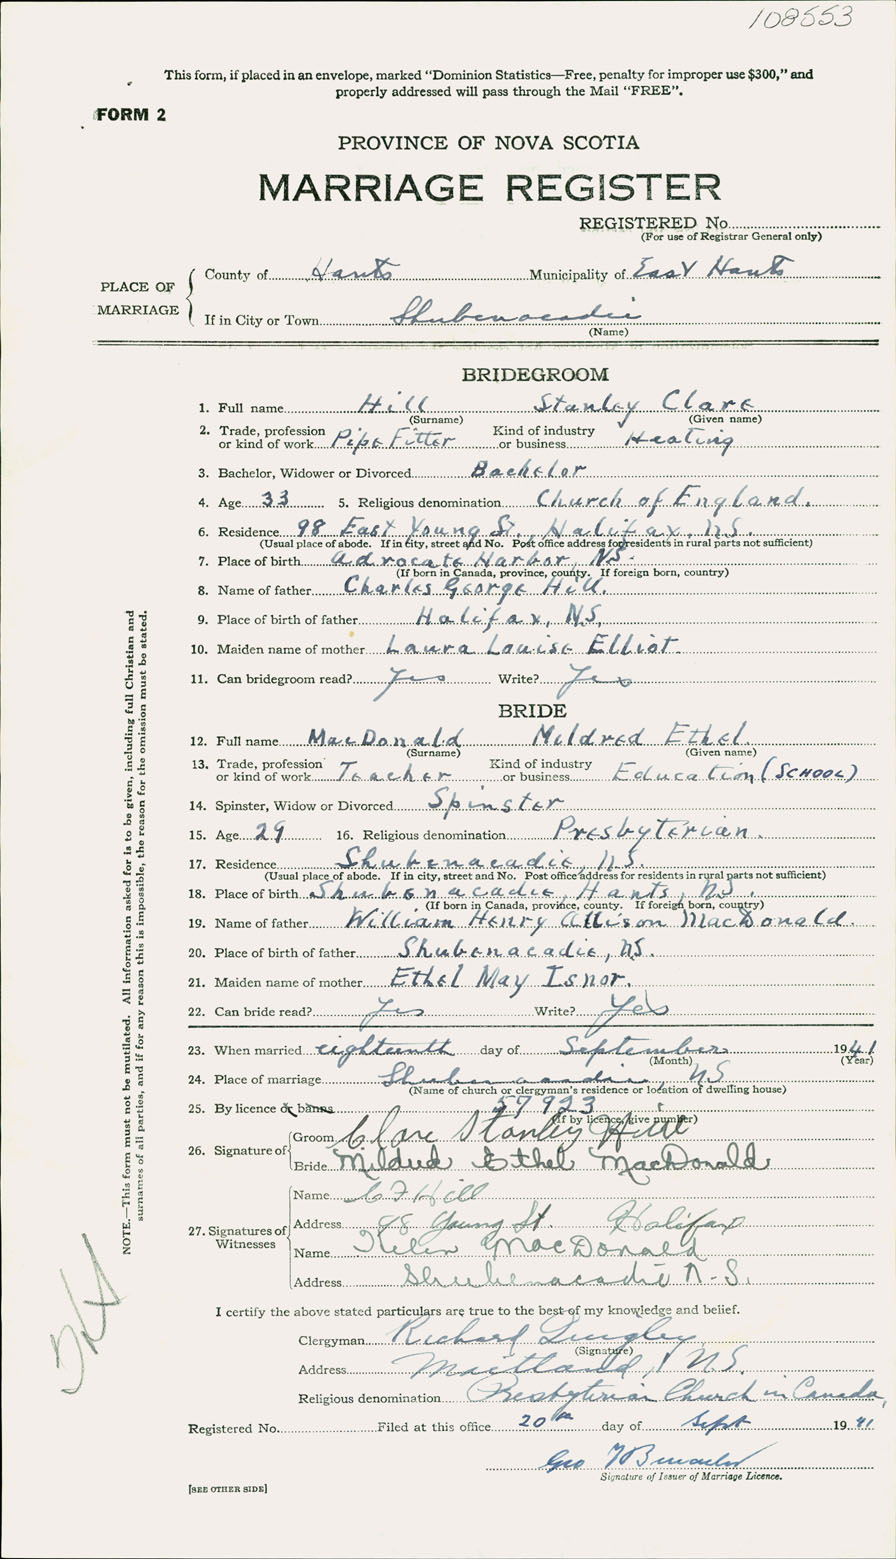 108553
This form, if placed in an envelope, marked "Dominion Statistics—Free, penalty for improper use $300," and
properly addressed will pass through the Mail "FREE".
FORM 2
PROVINCE OF NOVA SCOTIA
MARRIAGE REGISTER
REGISTERED No.
(For use of Registrar General only)
PLACE OF MARRIAGE
County of Hants Municipality of East Hants
If in City or Town Shubenacadie
(Name)
BRIDEGROOM
1. Full name Hill Stanley Clare
(Surname) (Given name)
2. Trade, profession or kind of work Pipe Fitter Kind of industry or business Heating
3. Bachelor, Widower or Divorced Bachelor
4. Age 33 5. Religious denomination Church of England.
6. Residence 98 East Young St., Halifax, N.S.
(Usual place of abode. If in city, street and No. Post office address for residents in rural parts not sufficient)
7. Place of birth Advocate Harbor, NS.
(If born in Canada, province, county. If foreign born, country)
8. Name of father Charles George Hill.
9. Place of birth of father Halifax, N.S.
10. Maiden name of mother Laura Louise Elliot.
11. Can bridegroom read? Yes Write? Yes
BRIDE
12. Full name MacDonald Mildred Ethel.
(Surname) (Given name)
13. Trade, profession or kind of work Teacher Kind of industry or business Education (SCHOOL)
14. Spinster, Widow or Divorced Spinster
15. Age 29 16. Religious denomination Presbyterian.
17. Residence Shubenacadie, N.S.
(Usual place of abode. If in city, street and No. Post office address for residents in rural parts not sufficient)
18. Place of birth Shubenacadie, Hants, NS.
(If born in Canada, province, county. If foreign born, country)
19. Name of father William Henry Allison MacDonald.
20. Place of birth of father Shubenacadie, NS.
21. Maiden name of mother Ethel May Isnor.
22. Can bride read? Yes Write? Yes
23. When married eighteenth day of September 1941
(Month) (Year)
24. Place of marriage Shubenacadie NS
(Name of church or clergyman's residence or location of dwelling house)
25. By licence or banns 57923
(If by licence, give number)
26. Signature of
Groom Clare Stanley Hill
Bride Mildred Ethel MacDonald
27. Signatures of Witnesses
Name C F Hill
Address 98 Young St. Halifax
Name Helen MacDonald
Address Shubenacadie N.S.
I certify the above stated particulars are true to the best of my knowledge and belief.
Clergyman Richard
(Signature)
Address Maitland, N.S.
Religious denomination Presbyterian Church in Canada,
Registered No. Filed at this office 20th day of Sept 1941
Geo
Signature of Issuer of Marriage Licence.
[SEE OTHER SIDE]
NOTE.—This form must not be mutilated. All information asked for is to be given, including full Christian and
surnames of all parties, and if for any reason this is impossible, the reason for the omission must be stated.